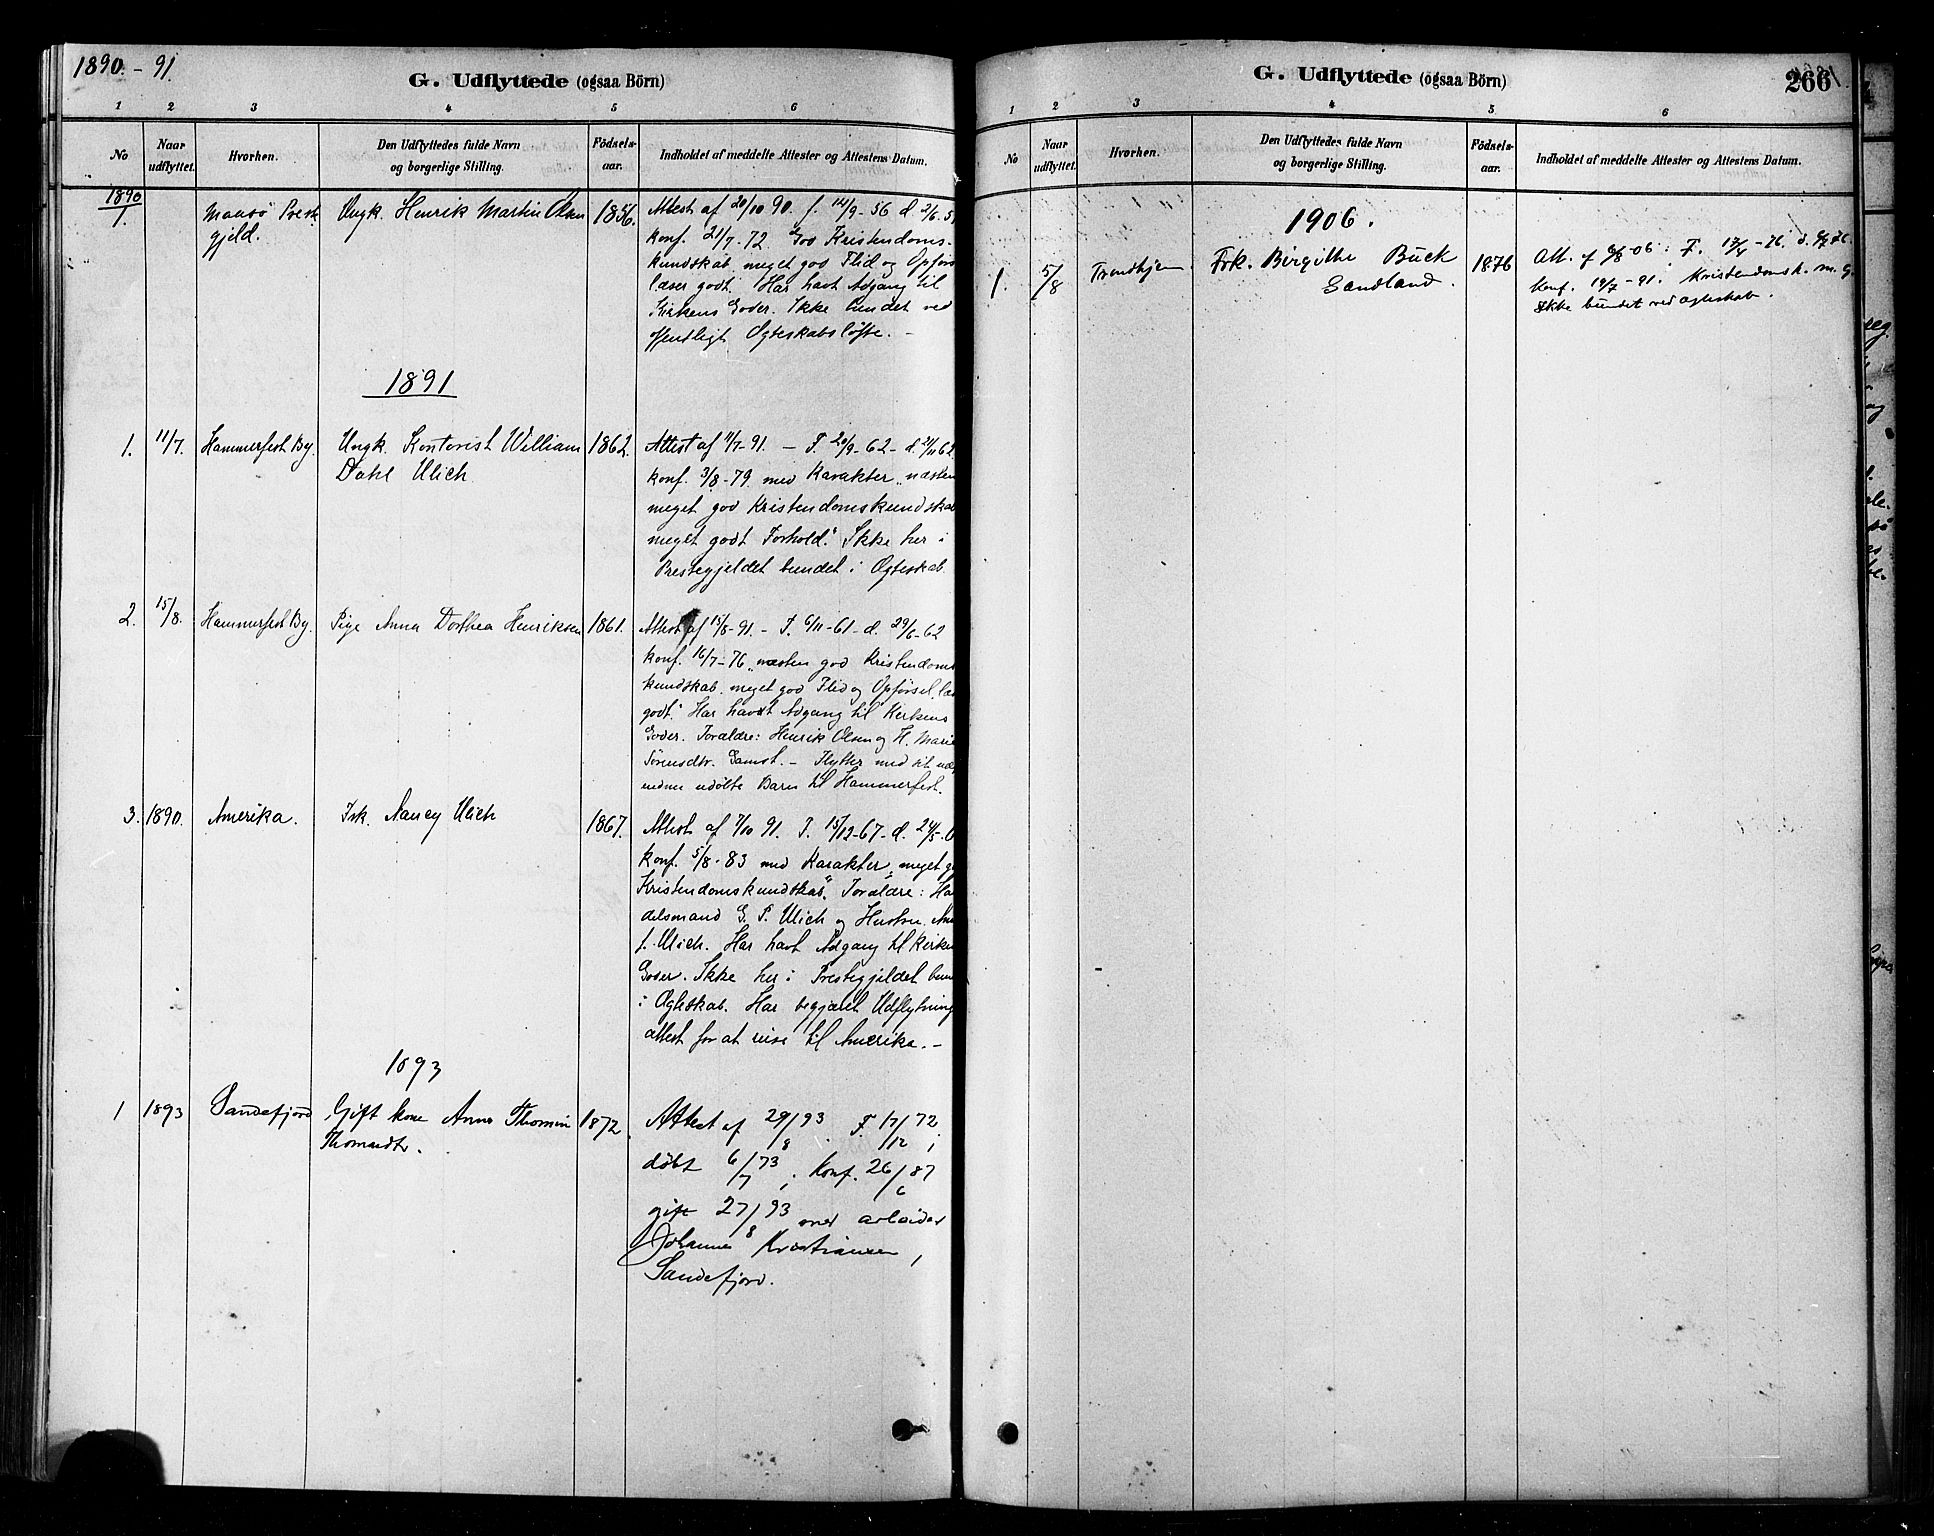 1890 - 91
G. Udflyttede (ogsaa Börn)
1 2 3 4 5 6
No
Naar udflyttet.
Hvorhen.
Den Udflyttedes fulde Navn og borgerlige Stilling.
Födsels-aar.
Indholdet af meddelte Attester og Attestens Datum.
1890
1. Maasö Præste Ungk. Henrik Martin Olsen 1856. Attest af 20/10 90. f. 14/9-56 d. 2/6.57
gjeld. konf. 21/7-72. God Kristendoms-
kundskab, meget god Flid og Opførs
læser godt. Har havt Adgang til
Kirkens Goder. Ikke bundet ved
offentligt Ægteskabsløfte. -
1891
1. 11/7. Hammerfest By. Ungk. Kontorist William 1862. Attest af 11/7-91. - F. 20/9-62 - d. 21/11 62.
Dahl Ulich konf. 3/8-79. med Karakter „næsten
meget god Kristendomskundskab
meget godt Forhold." Ikke her i
Prestegjeldet bundet i Ægteskab.
2. 15/8. Hammerfest By. Pige Anna Dorthea Henriksen 1861. Attest af 15/8-91. - F. 6/11-61-d. 29/6-62
konf. 16/7-76 „næsten god Kristendoms
kundskab, meget god Flid og Opførsel, læs
godt." Har havt Adgang til Kirkens
Goder. Forældre: Henrik Olsen og H. Marie
Sörensdtr. Gamst. - Flytter med sit
endnu udøbte Barn til Hammerfest.
3. 1890. Amerika. Frk. Nancy Ulich 1867. Attest af 7/10 91. F. 15/12-67-d. 24/5-6
konf. 5/8-83 med Karakter „meget g
Kristendomskundskab". Forældre: Han
delsmand G. P. Ulich og Hustru
f. Ulich. Har havt Adgang til Kirken
Goder. Ikke her i Prestegjeldet bun
i Ægteskab. Har begjæret Udflytning
attest for at reise til Amerika. -
1893
1 1893 Sandefjord Gift kone Anna Thomine 1872. Attest af 29/8 93. F. 17/12 72,
Thomasdtr. døbt 6/7 73, Konf. 26/6 87
gift 27/8 93 med arbeider
Johannes Kristiansen,
Sandefjord.
G. Udflyttede (ogsaa Börn)
266
1 2 3 4 5 6
No
Naar udflyttet.
Hvorhen.
Den Udflyttedes fulde Navn og borgerlige Stilling.
Födsels-aar.
Indholdet af meddelte Attester og Attestens Datum.
1906.
1. 5/8 Trondhjem Frk. Birgithe Buck 1876 Att. af 6/8-06: F. 17/4-76. d. 9/7 76.
Sandland. Konf. 19/7-91. Kristendomsk. m. g.
Ikke bundet ved ægteskab.